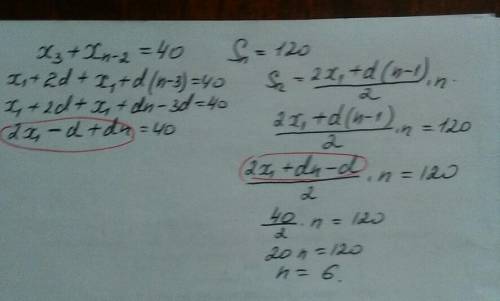 x₃ + xₙ₋₂ = 40
x₁ + 2d + x₁ + d(n-3) = 40
x₁ + 2d + x₁ + dn - 3d = 40
2x₁ - d + dn = 40
Sₙ = 120
Sₙ = (2x₁ + d(n-1))/2 · n.
(2x₁ + d(n-1))/2 · n = 120
(2x₁ + dn - d)/2 · n = 120
40/2 · n = 120
20n = 120
n = 6.